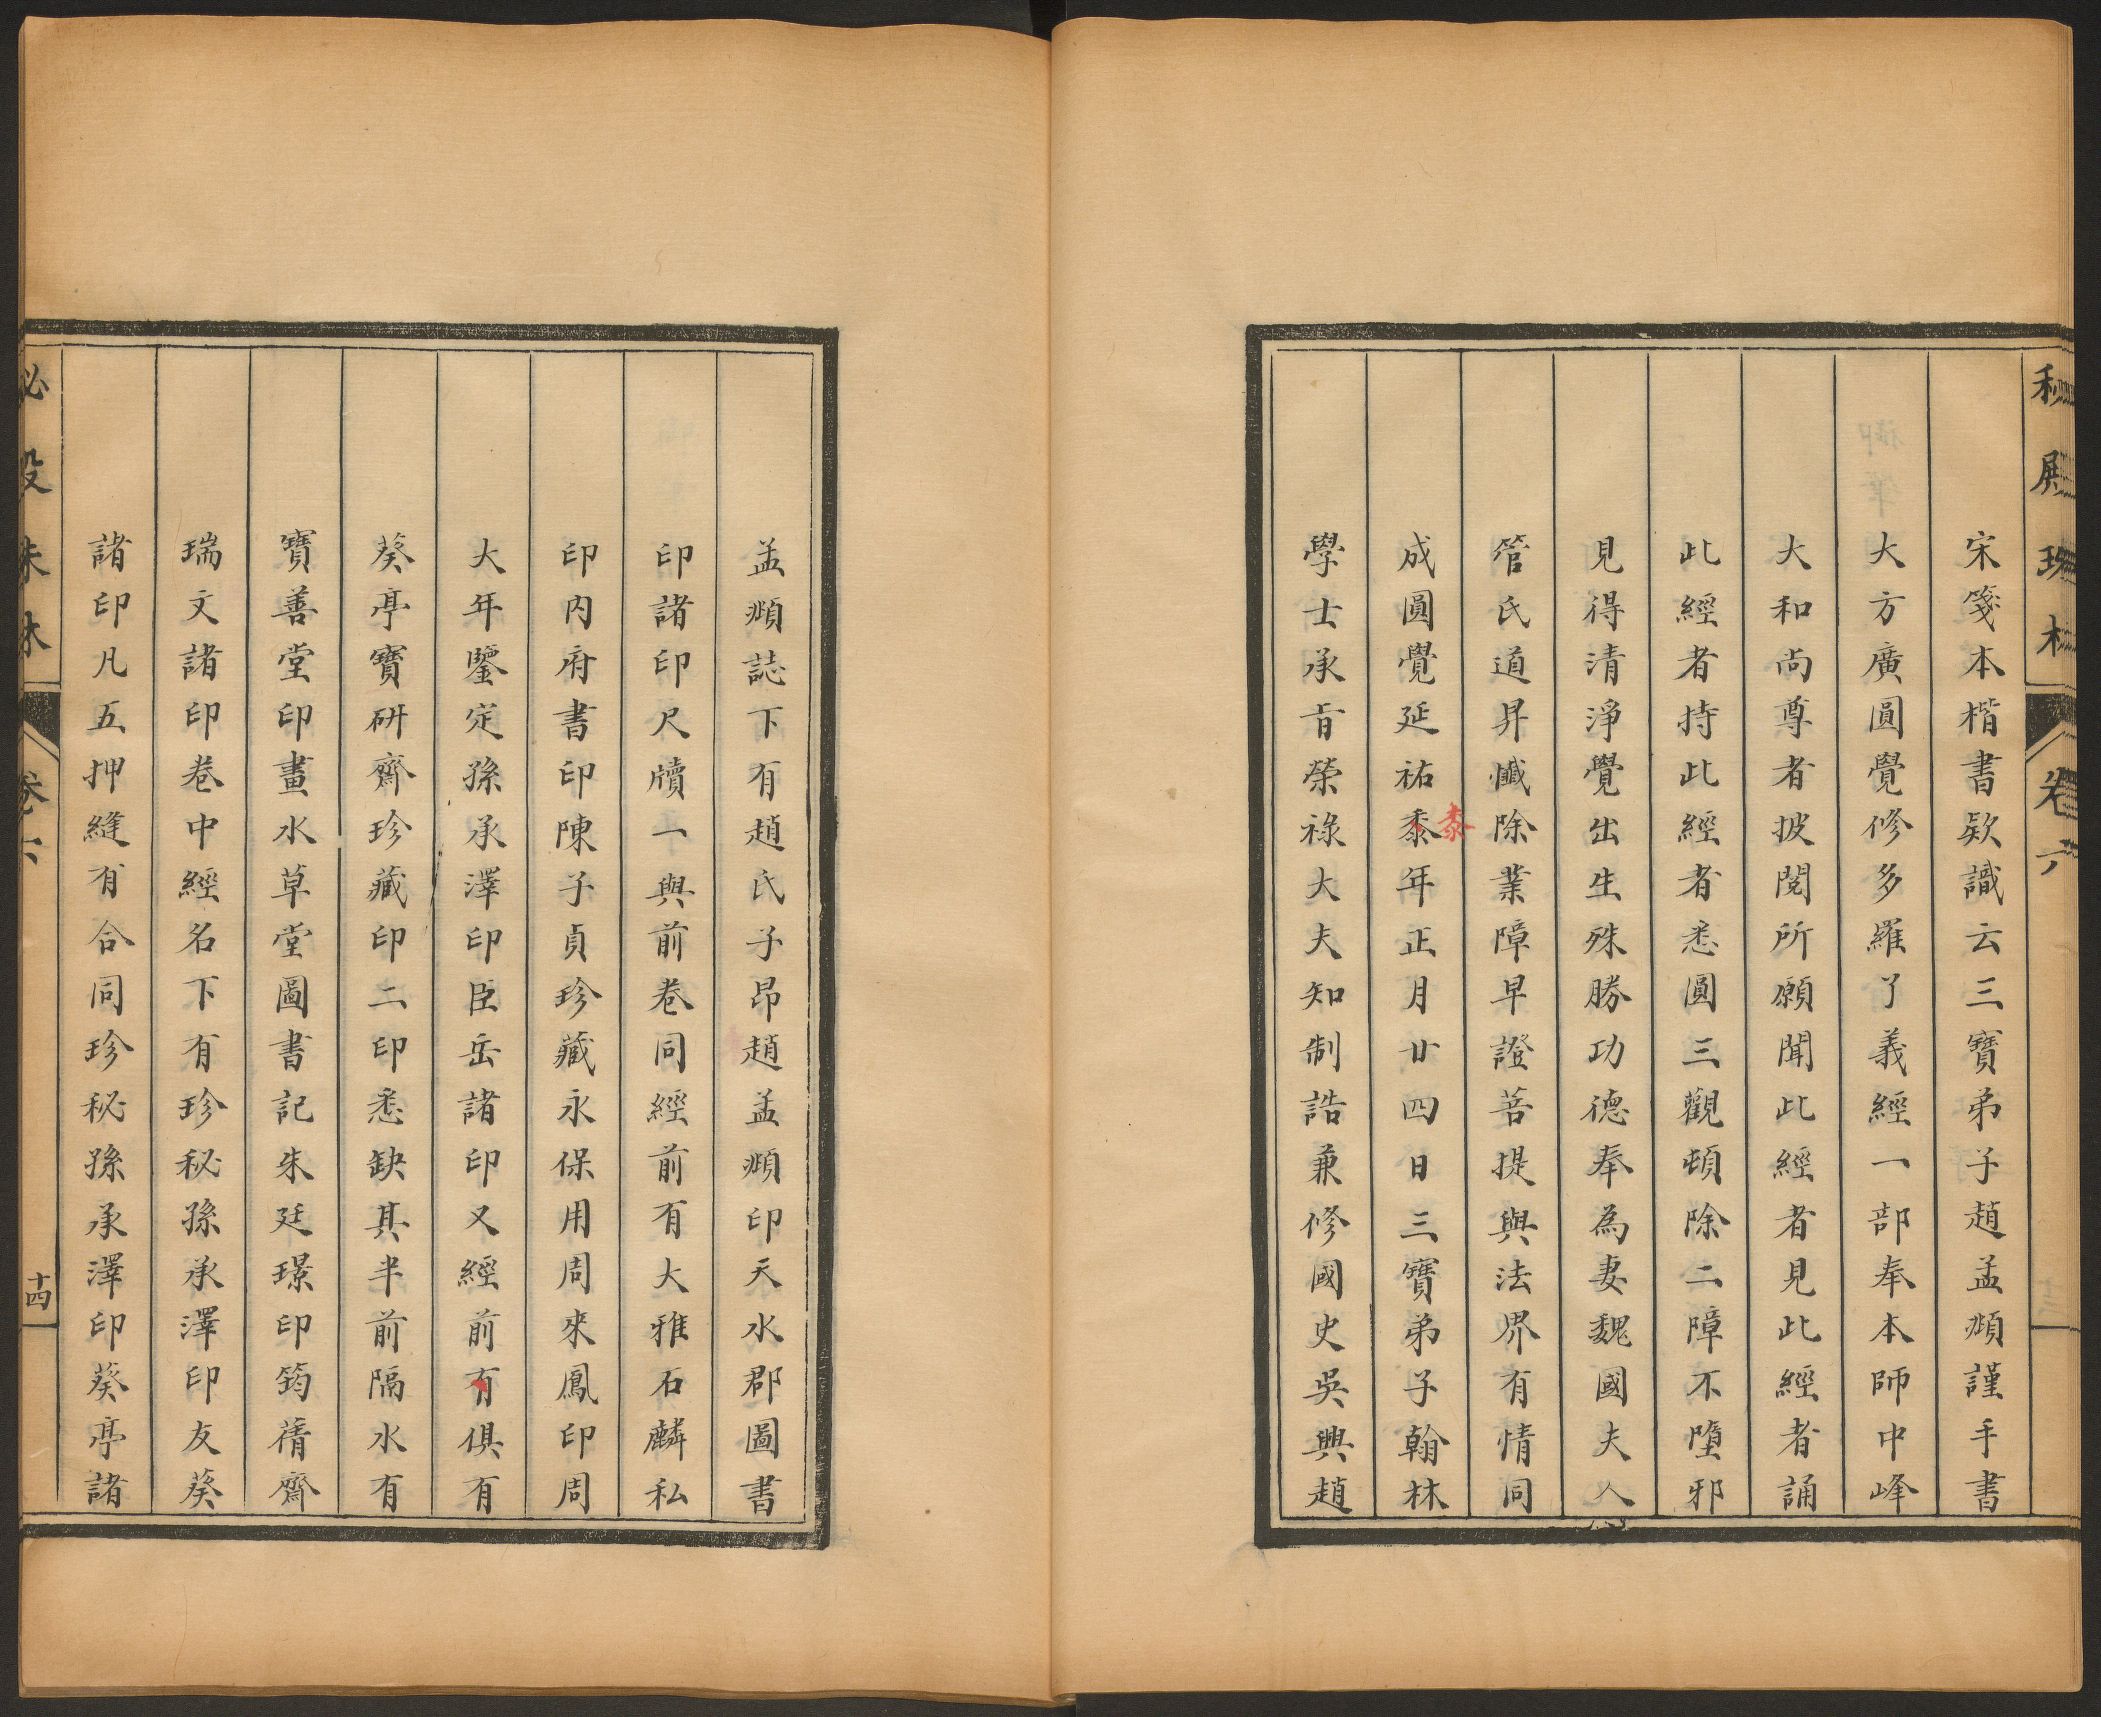 秘殿珠林 卷六
宋箋本楷書款識云三寶弟子趙孟頫謹手書
大方廣圓覺修多羅了義經一部奉本師中峰
大和尚尊者披閱所願聞此經者見此經者誦
此經者持此經者悉圓三觀頓除二障不墮邪
見得清淨覺出生殊勝功德奉為妻魏國夫人
管氏道昇懺除業障早證菩提與法界有情同
成圓覺延祐黍年正月廿四日三寶弟子翰林
黍
學士承旨榮祿大夫知制誥兼修國史吳興趙
孟頫誌下有趙氏子昂趙孟頫印天水郡圖書
印諸印尺牘一與前卷同經前有大雅石麟私
印內府書印陳子貞珍藏永保用周來鳳印周
大年鑒定孫承澤印臣岳諸印又經前有俱有
葵亭寶研齋珍藏印二印悉缺其半前隔水有
寶善堂印畫水草堂圖書記朱廷璟印筠蒨齋
瑞文諸印卷中經名下有珍秘孫承澤印友葵
諸印凡五押縫有合同珍秘孫承澤印葵亭諸
秘殿珠林 卷六 十四